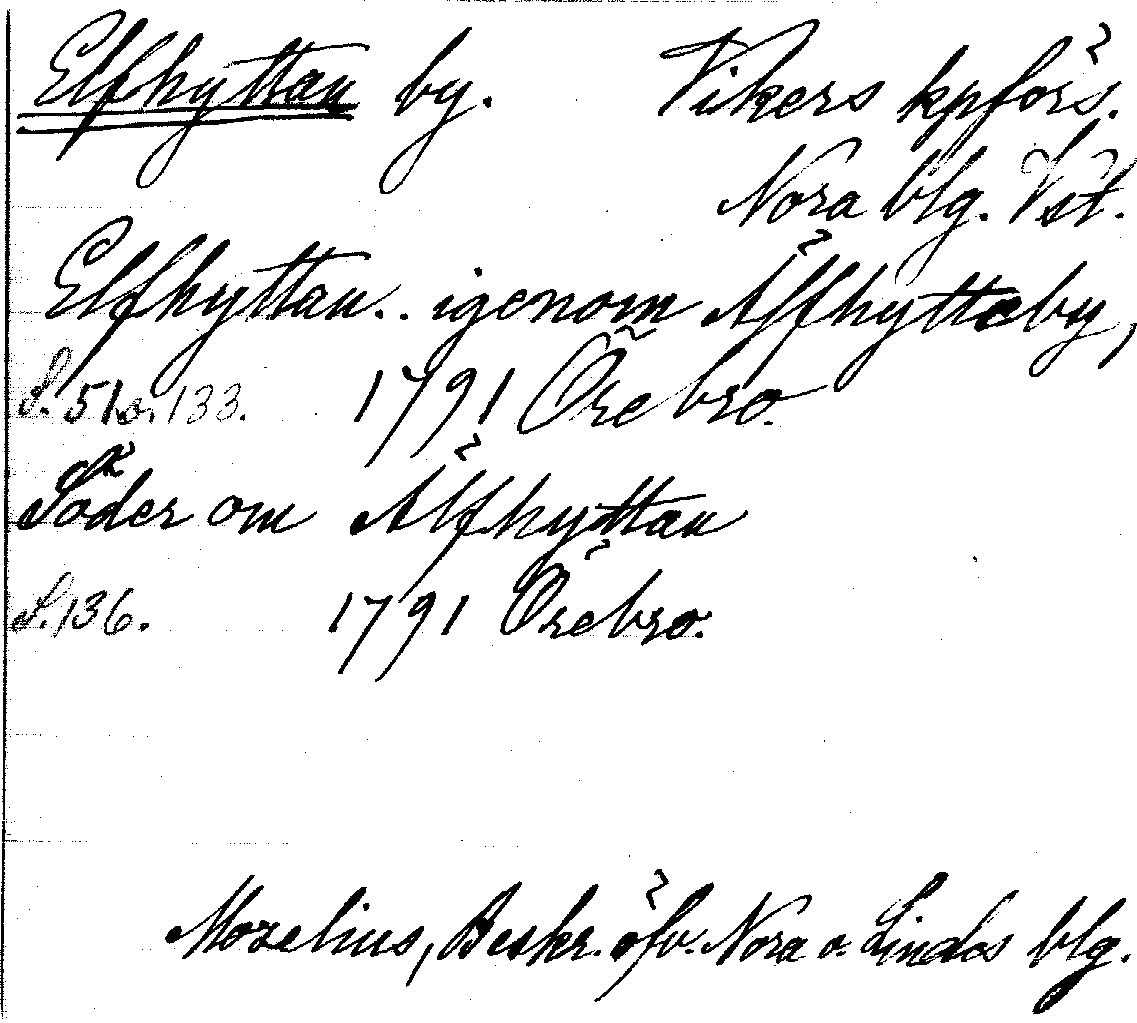 Elfhyttan by. Vikers kpförs.
Nora blg. Vst.
Elfhyttan.. igenom Älfhytteby,
S. 51 o. 133. 1791 Örebro.
Söder om Älfhyttan
S. 136. 1791 Örebro.
Mozelius, Beskr. öfv. Nora o. Lindes blg.